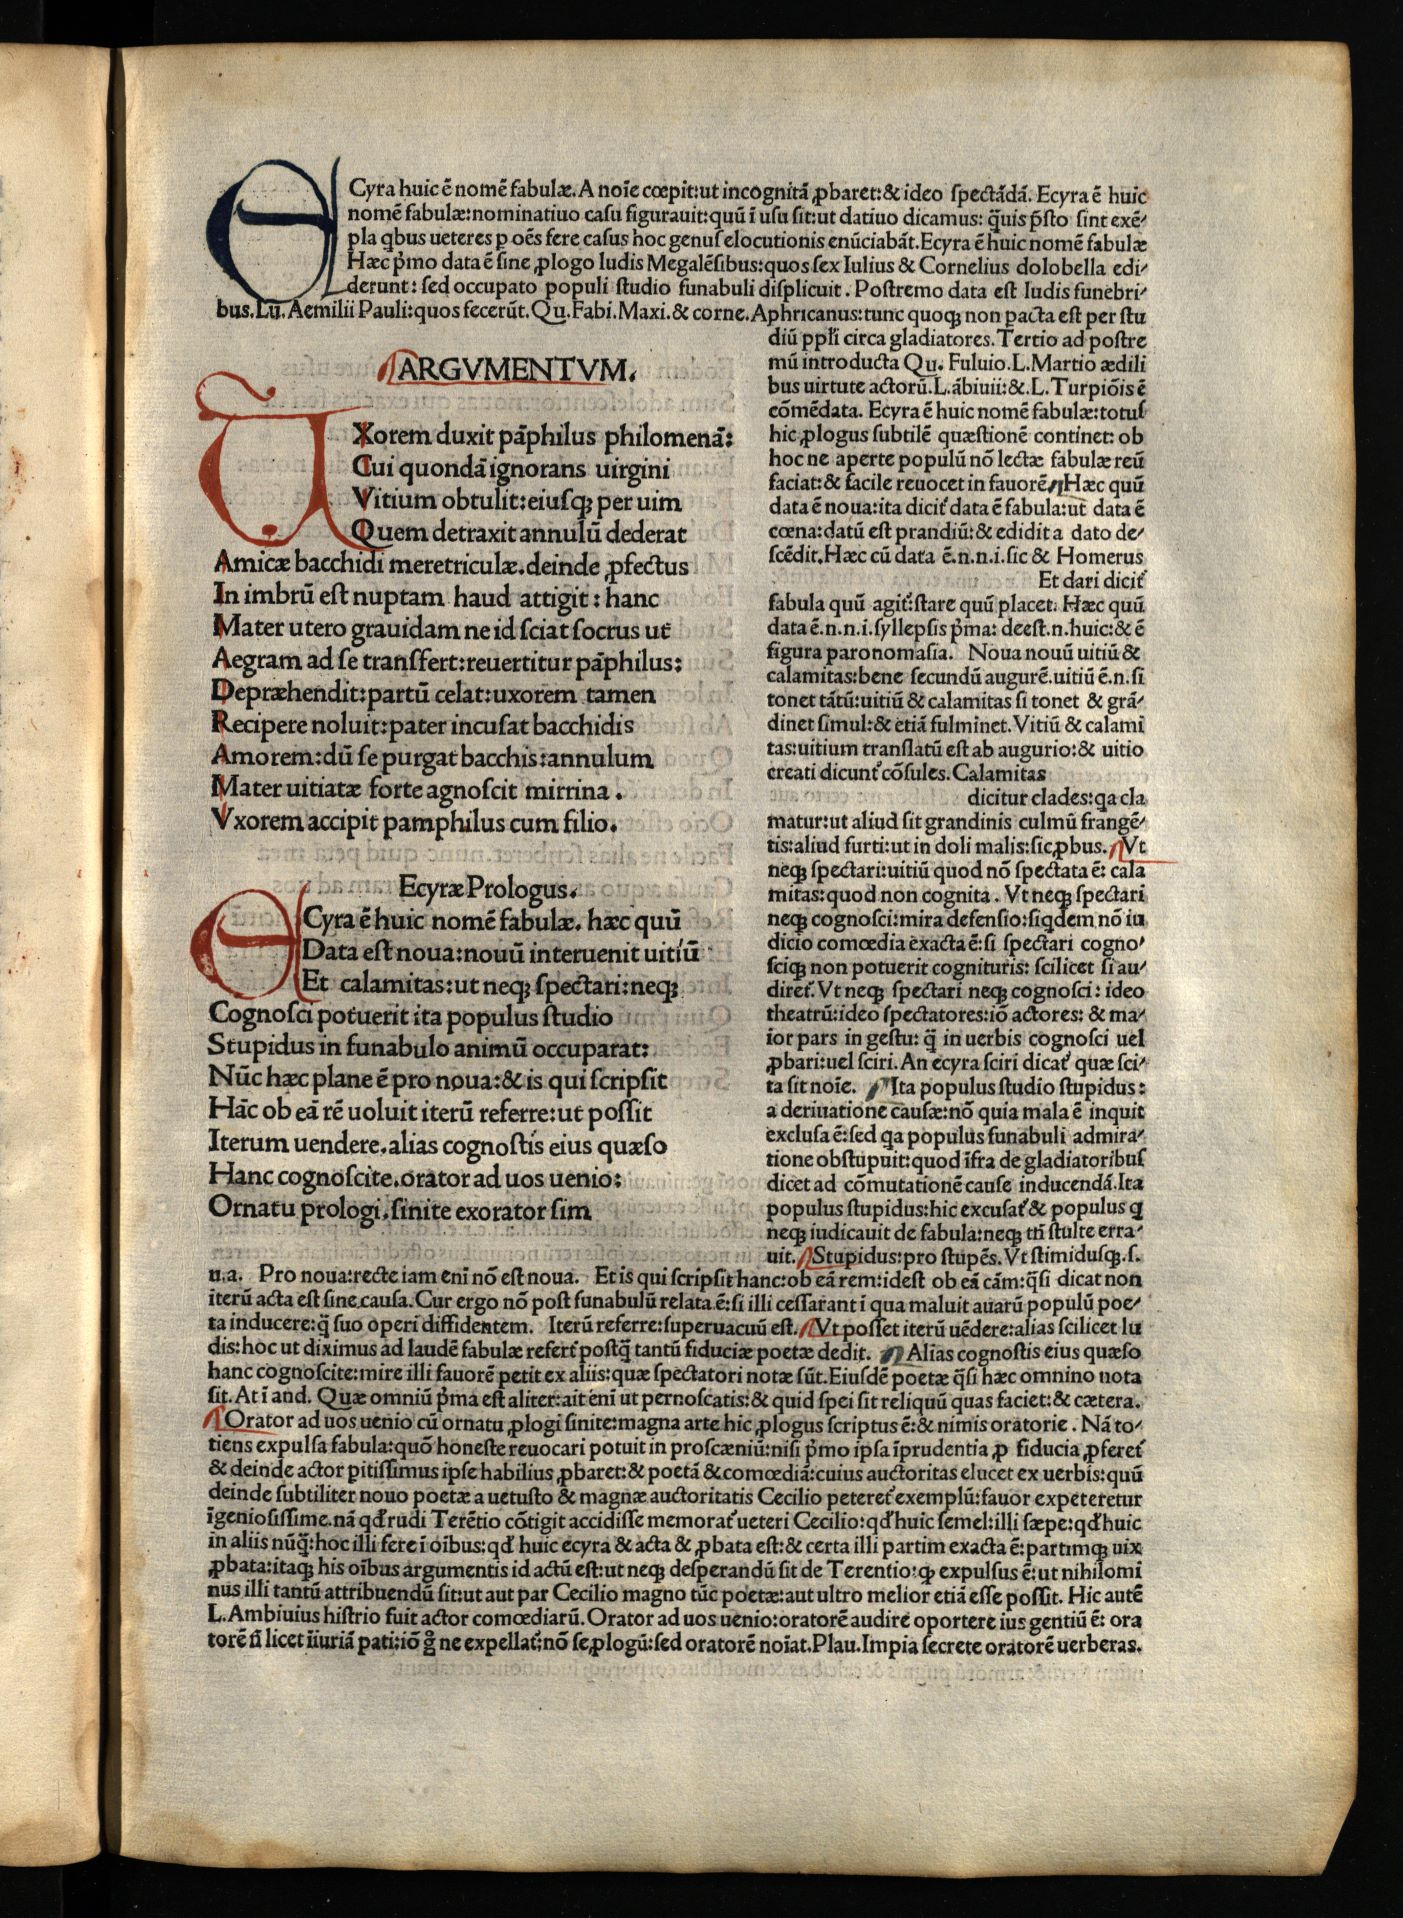 ECyra huic ē nomē fabulæ. A noīe cœpit:ut incognitā ꝓbaret:& ideo spectādā. Ecyra ē huic
nomē fabulæ:nominatiuo casu figurauit:quū ī usu sit:ut datiuo dicamus: q̄uis p̄sto sint exē-
pla qbus ueteres p oēs fere casus hoc genus elocutionis enūciabāt. Ecyra ē huic nomē fabulæ
Hæc p̄mo data ē sine ꝓlogo ludis Megalēsibus:quos sex Iulius & Cornelius dolobella edi-
derunt: sed occupato populi studio funabuli displicuit. Postremo data est ludis funebri-
bus. Lū. Aemilii Pauli:quos fecerūt. Qu. Fabi. Maxi. & corne. Aphricanus:tunc quoqꝫ non pacta est per stu
diū ppłi circa gladiatores. Tertio ad postre
mū introducta Qu. Fuluio. L. Martio ædili
bus uirtute actorū. L. ābiuii:& L. Turpiōis ē
cōmēdata. Ecyra ē huic nomē fabulæ:totus
hic ꝓlogus subtilē quæstionē continet: ob
hoc ne aperte populū nō lectæ fabulæ reū
faciat:& facile reuocet in fauorē. Hæc quū
data ē noua:ita dicit̄ data ē fabula:ut data ē
cœna:datū est prandiū:& edidit a dato de-
scēdit. Hæc cū data ē.n.n.i.sic & Homerus
Et dari dicit̄
fabula quū agit̄:stare quū placet. Hæc quū
data ē.n.n.i.syllepsis p̄ma: deest.n.huic:& ē
figura paronomasia. Noua nouū uitiū &
calamitas:bene secundū augurē. uitiū ē.n.si
tonet tātū:uitiū & calamitas si tonet & grā-
dinet simul:& etiā fulminet. Vitiū & calami
tas:uitium translatū est ab augurio:& uitio
creati dicunt̄ cōsules. Calamitas
dicitur clades:qa cla
matur:ut aliud sit grandinis culmū frangē-
tis:aliud furti:ut in doli malis:sic ꝓbus. Vt
neqꝫ spectari:uitiū quod nō spectata ē: cala
mitas:quod non cognita. Vt neqꝫ spectari
neqꝫ cognosci:mira defensio:siqdem nō iu
dicio comœdia exacta ē:si spectari cogno-
sciqꝫ non potuerit cognituris: scilicet si au-
diret̄. Vt neqꝫ spectari neqꝫ cognosci: ideo
theatrū:ideo spectatores:iō actores: & ma-
ior pars in gestu: q̄ in uerbis cognosci uel
ꝓbari:uel sciri. An ecyra sciri dicat̄ quæ sci-
ta sit noīe. Ita populus studio stupidus:
a deriuatione causæ:nō quia mala ē inquit
exclusa ē:sed qa populus funabuli admira-
tione obstupuit:quod īfra de gladiatoribus
dicet ad cōmutationē cause inducendā. Ita
populus stupidus:hic excusat̄ & populus q
neqꝫ iudicauit de fabula:neqꝫ tn̄ stulte erra-
uit. Stupidus:pro stupēs. Vt stimidusqꝫ.s.
ARGVMENTVM.
VXorem duxit pāphilus philomenā:
Cui quondā ignorans uirgini
Vitium obtulit:eiusqꝫ per uim
Quem detraxit annulū dederat
Amicæ bacchidi meretriculæ. deinde ꝓfectus
In imbrū est nuptam haud attigit: hanc
Mater utero grauidam ne id sciat socrus ut
Aegram ad se transfert:reuertitur pāphilus:
Depræhendit:partū celat:uxorem tamen
Recipere noluit:pater incusat bacchidis
Amorem:dū se purgat bacchis:annulum
Mater uitiatæ forte agnoscit mirrina.
Vxorem accipit pamphilus cum filio.
Ecyræ Prologus.
ECyra ē huic nomē fabulæ. hæc quū
Data est noua:nouū interuenit uitiū
Et calamitas:ut neqꝫ spectari:neqꝫ
Cognosci potuerit ita populus studio
Stupidus in funabulo animū occuparat:
Nūc hæc plane ē pro noua:& is qui scripsit
Hāc ob eā rē uoluit iterū referre:ut possit
Iterum uendere. alias cognostis eius quæso
Hanc cognoscite. orator ad uos uenio:
Ornatu prologi. sinite exorator sim
u.a. Pro noua:recte iam enī nō est noua. Et is qui scripsit hanc:ob eā rem:idest ob eā cām:q̄si dicat non
iterū acta est sine causa. Cur ergo nō post funabulū relata ē:si illi cessarant ī qua maluit auarū populū poe-
ta inducere:q̄ suo operi diffidentem. Iterū referre:superuacuū est. Vt posset iterū uēdere:alias scilicet lu
dis:hoc ut diximus ad laudē fabulæ refert̄ postq̄ tantū fiduciæ poetæ dedit. Alias cognostis eius quæso
hanc cognoscite:mire illi fauorē petit ex aliis:quæ spectatori notæ sūt. Eiusdē poetæ q̄si hæc omnino nota
sit. At ī and. Quæ omniū p̄ma est aliter:ait enī ut pernoscatis:& quid spei sit reliquū quas faciet:& cætera.
Orator ad uos uenio cū ornatu ꝓlogi sinite:magna arte hic ꝓlogus scriptus ē:& nimis oratorie. Nā to-
tiens expulsa fabula:quō honeste reuocari potuit in proscæniū:nisi p̄mo ipsa īprudentia ꝓ fiducia ꝓferet̄
& deinde actor pitissimus ipse habilius ꝓbaret:& poetā & comœdiā:cuius auctoritas elucet ex uerbis:quū
deinde subtiliter nouo poetæ a uetusto & magnæ auctoritatis Cecilio peteret̄ exemplū:fauor expeteretur
īgeniosissime. nā qd̄ rudi Terētio cōtigit accidisse memorat̄ ueteri Cecilio:qd̄ huic semel:illi sæpe:qd̄ huic
in aliis nūq̄:hoc illi fere ī oībus:qd̄ huic ecyra & acta & ꝓbata est:& certa illi partim exacta ē:partimqꝫ uix
ꝓbata:itaqꝫ his oībus argumentis id actū est:ut neqꝫ desperandū sit de Terentio:qꝫ expulsus ē:ut nihilomi
nus illi tantū attribuendū sit:ut aut par Cecilio magno tūc poetæ:aut ultro melior etiā esse possit. Hic autē
L. Ambiuius histrio fuit actor comœdiarū. Orator ad uos uenio:oratorē audire oportere ius gentiū ē: ora
torē n̄ licet īiuriā pati:iō g ne expellat̄:nō se ꝓlogū:sed oratorē noīat. Plau. Impia secrete oratorē uerberas.